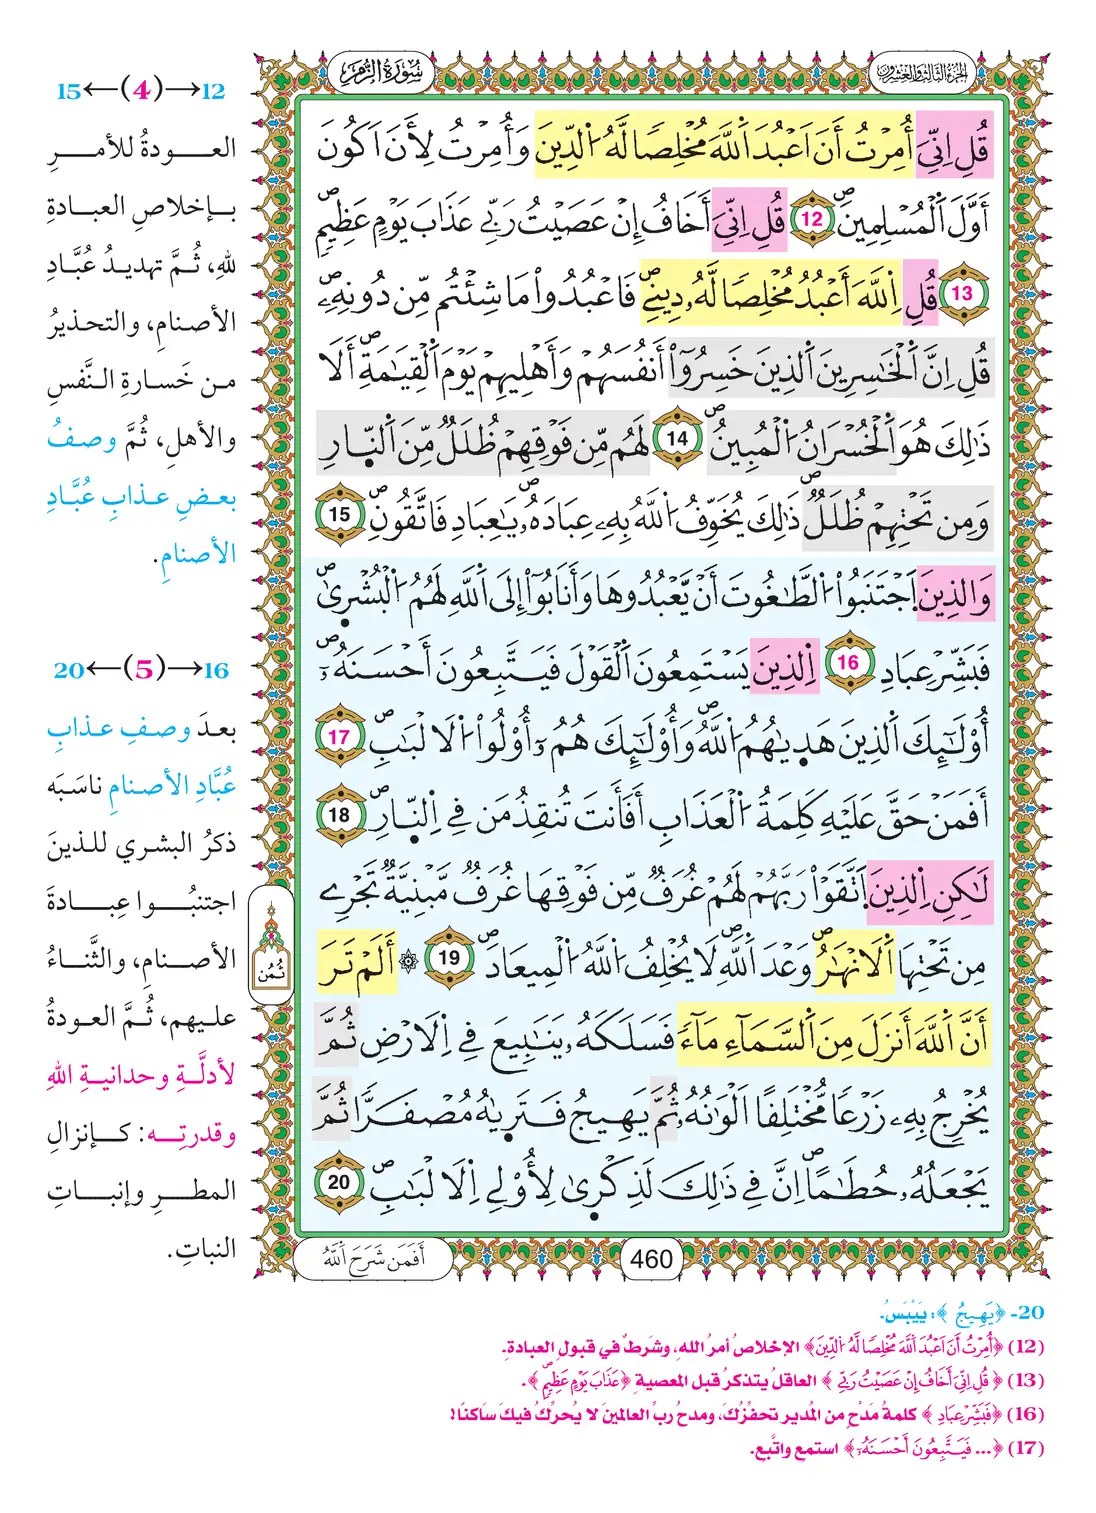 سُورَةُ الزُّمَرِ
الجزء الثالث والعشرون
قُلِ اِنِّيَ أُمِرْتُ أَنَ اَعْبُدَ اَ۬للَّهَ مُخْلِصاٗ لَّهُ اُ۬لدِّينَ وَأُمِرْتُ لِأَنَ اَكُونَ
أَوَّلَ اَ۬لْمُسْلِمِينَۖ 12 قُلِ اِنِّيَ أَخَافُ إِنْ عَصَيْتُ رَبِّے عَذَابَ يَوْمٍ عَظِيمٖۖ
13 قُلِ اِ۬للَّهَ أَعْبُدُ مُخْلِصاٗ لَّهُۥ دِينِےۖ فَاعْبُدُواْ مَا شِئْتُم مِّن دُونِهِۦۖ
قُلِ اِنَّ اَ۬لْخَٰسِرِينَ اَ۬لذِينَ خَسِرُوٓاْ أَنفُسَهُمْ وَأَهْلِيهِمْ يَوْمَ اَ۬لْقِيَٰمَةِۖ أَلَا
ذَٰلِكَ هُوَ اَ۬لْخُسْرَانُ اُ۬لْمُبِينُۖ 14 لَهُم مِّن فَوْقِهِمْ ظُلَلٞ مِّنَ اَ۬لنّ۪ارِ
وَمِن تَحْتِهِمْ ظُلَلٞۖ ذَٰلِكَ يُخَوِّفُ اُ۬للَّهُ بِهِۦ عِبَادَهُۥۖ يَٰعِبَادِ فَاتَّقُونِۖ 15
وَالذِينَ اَ۪جْتَنَبُواْ اُ۬لطَّٰغُوتَ أَنْ يَّعْبُدُوهَا وَأَنَابُوٓاْ إِلَى اَ۬للَّهِ لَهُمُ اُ۬لْبُشْر۪ىٰۖ
فَبَشِّرْ عِبَادِ 16 اِ۬لذِينَ يَسْتَمِعُونَ اَ۬لْقَوْلَ فَيَتَّبِعُونَ أَحْسَنَهُۥٓۖ
أُوْلَٰٓئِكَ اَ۬لذِينَ هَد۪يٰهُمُ اُ۬للَّهُۖ وَأُوْلَٰٓئِكَ هُمُۥٓ أُوْلُواْ اُ۬لَالْبَٰبِۖ 17
أَفَمَنْ حَقَّ عَلَيْهِ كَلِمَةُ اُ۬لْعَذَابِ أَفَأَنتَ تُنقِذُ مَن فِے اِ۬لنّ۪ارِۖ 18
لَٰكِنِ اِ۬لذِينَ اَ۪تَّقَوْاْ رَبَّهُمْ لَهُمْ غُرَفٞ مِّن فَوْقِهَا غُرَفٞ مَّبْنِيَّةٞ تَجْرِے
مِن تَحْتِهَا اَ۬لَانْهَٰرُۖ وَعْدَ اَ۬للَّهِۖ لَا يُخْلِفُ اُ۬للَّهُ اُ۬لْمِيعَادَۖ 19 ۞ أَلَمْ تَرَ
أَنَّ اَ۬للَّهَ أَنزَلَ مِنَ اَ۬لسَّمَآءِ مَآءٗ فَسَلَكَهُۥ يَنَٰبِيعَ فِے اِ۬لَارْضِ ثُمَّ
يُخْرِجُ بِهِۦ زَرْعاٗ مُّخْتَلِفاً اَلْوَٰنُهُۥ ثُمَّ يَهِيجُ فَتَر۪يٰهُ مُصْفَرّاٗ ثُمَّ
يَجْعَلُهُۥ حُطَٰماًۖ اِنَّ فِے ذَٰلِكَ لَذِكْر۪ىٰ لِأُوْلِے اِ۬لَالْبَٰبِۖ 20
ثُمُن
أَفَمَن شَرَحَ اَ۬للَّهُ
460
12→(4)←15
العودةُ للأمرِ
بإخلاصِ العبادةِ
للهِ، ثُمَّ تهديدُ عُبَّادِ
الأصنامِ، والتحذيرُ
من خَسارةِ النَّفسِ
والأهلِ، ثُمَّ وصفُ
بعضِ عذابِ عُبَّادِ
الأصنامِ.
16→(5)←20
بعدَ وصفِ عذابِ
عُبَّادِ الأصنامِ ناسَبَه
ذكرُ البشري للذينَ
اجتنبُوا عِبادةَ
الأصنامِ، والثَّناءُ
عليهم، ثُمَّ العودةُ
لأدلَّةِ وحدانيةِ اللهِ
وقدرتِه: كإنزالِ
المطرِ وإنباتِ
النباتِ.
20- ﴿يَهِيجُ﴾: يَيْبَسُ.
(12) ﴿أُمِرْتُ أَنَ اَعْبُدَ اَ۬للَّهَ مُخْلِصاٗ لَّهُ اُ۬لدِّينَ﴾ الإخلاصُ أمرُ اللهِ، وشَرطٌ في قبولِ العبادةِ.
(13) ﴿قُلِ اِنِّيَ أَخَافُ إِنْ عَصَيْتُ رَبِّے﴾ العاقلُ يتذكرُ قبل المعصيةِ ﴿عَذَابَ يَوْمٍ عَظِيمٖۖ﴾.
(16) ﴿فَبَشِّرْ عِبَادِ﴾ كلمةُ مَدْحٍ من المُدير تحفِّزُكَ، ومدحُ ربِّ العالمينَ لا يُحرِّكُ فيكَ سَاكنًا!
(17) ﴿... فَيَتَّبِعُونَ أَحْسَنَهُۥٓ﴾ استمع واتَّبع.